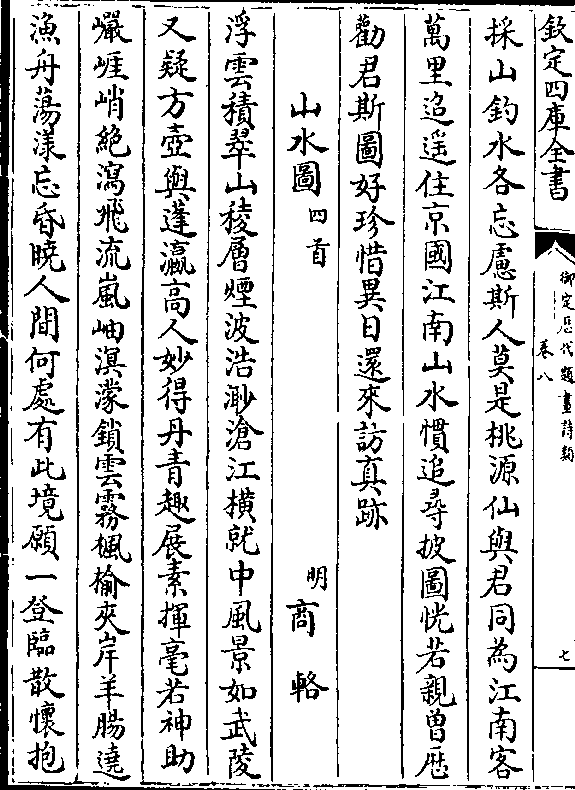 欽定四庫全書
御定歷代題畫詩類
卷八
七
採山釣水各忘慮斯人莫是桃源仙與君同為江南客
萬里迢遥住京國江南山水慣追尋披圖恍若親曾歴
勸君斯圖好珍惜異日還來訪真跡
山水圖四首 明商輅
浮雲積翠山稜層煙波浩渺滄江横就中風景如武陵
又疑方壺與蓬瀛高人妙得丹青趣展素揮毫若神助
巗崕峭絶瀉飛流嵐岫溟濛鎖雲霧楓榆夾岸羊腸遶
漁舟蕩漾忘昏曉人間何處有此境願一登臨散懷抱